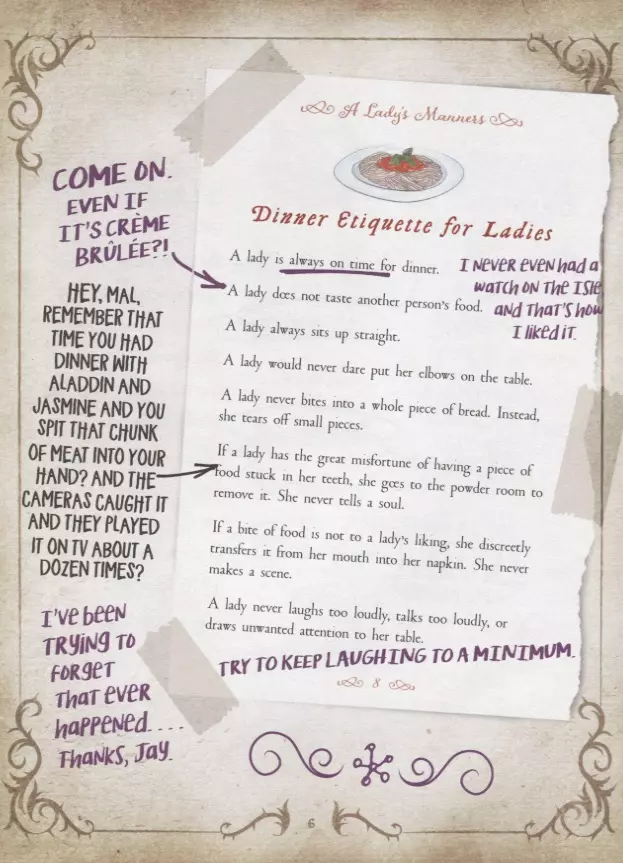 A Lady's Manners
Dinner Etiquette for Ladies
A lady is always on time for dinner.
A lady does not taste another person's food.
A lady always sits up straight.
A lady would never dare put her elbows on the table.
A lady never bites into a whole piece of bread. Instead,
she tears off small pieces.
If a lady has the great misfortune of having a piece of
food stuck in her teeth, she goes to the powder room to
remove it. She never tells a soul.
If a bite of food is not to a lady's liking, she discreetly
transfers it from her mouth into her napkin. She never
makes a scene.
A lady never laughs too loudly, talks too loudly, or
draws unwanted attention to her table.
TRY TO KEEP LAUGHING TO A MINIMUM.
8
COME ON.
EVEN IF
IT'S CRÈME
BRÛLÉE?!
I NEVER EVEN HAD A
WATCH ON THE ISLE,
AND THAT'S HOW
I LIKED IT.
HEY, MAL,
REMEMBER THAT
TIME YOU HAD
DINNER WITH
ALADDIN AND
JASMINE AND YOU
SPIT THAT CHUNK
OF MEAT INTO YOUR
HAND? AND THE
CAMERAS CAUGHT IT
AND THEY PLAYED
IT ON TV ABOUT A
DOZEN TIMES?
I'VE BEEN
TRYING TO
FORGET
THAT EVER
HAPPENED....
THANKS, JAY.
6